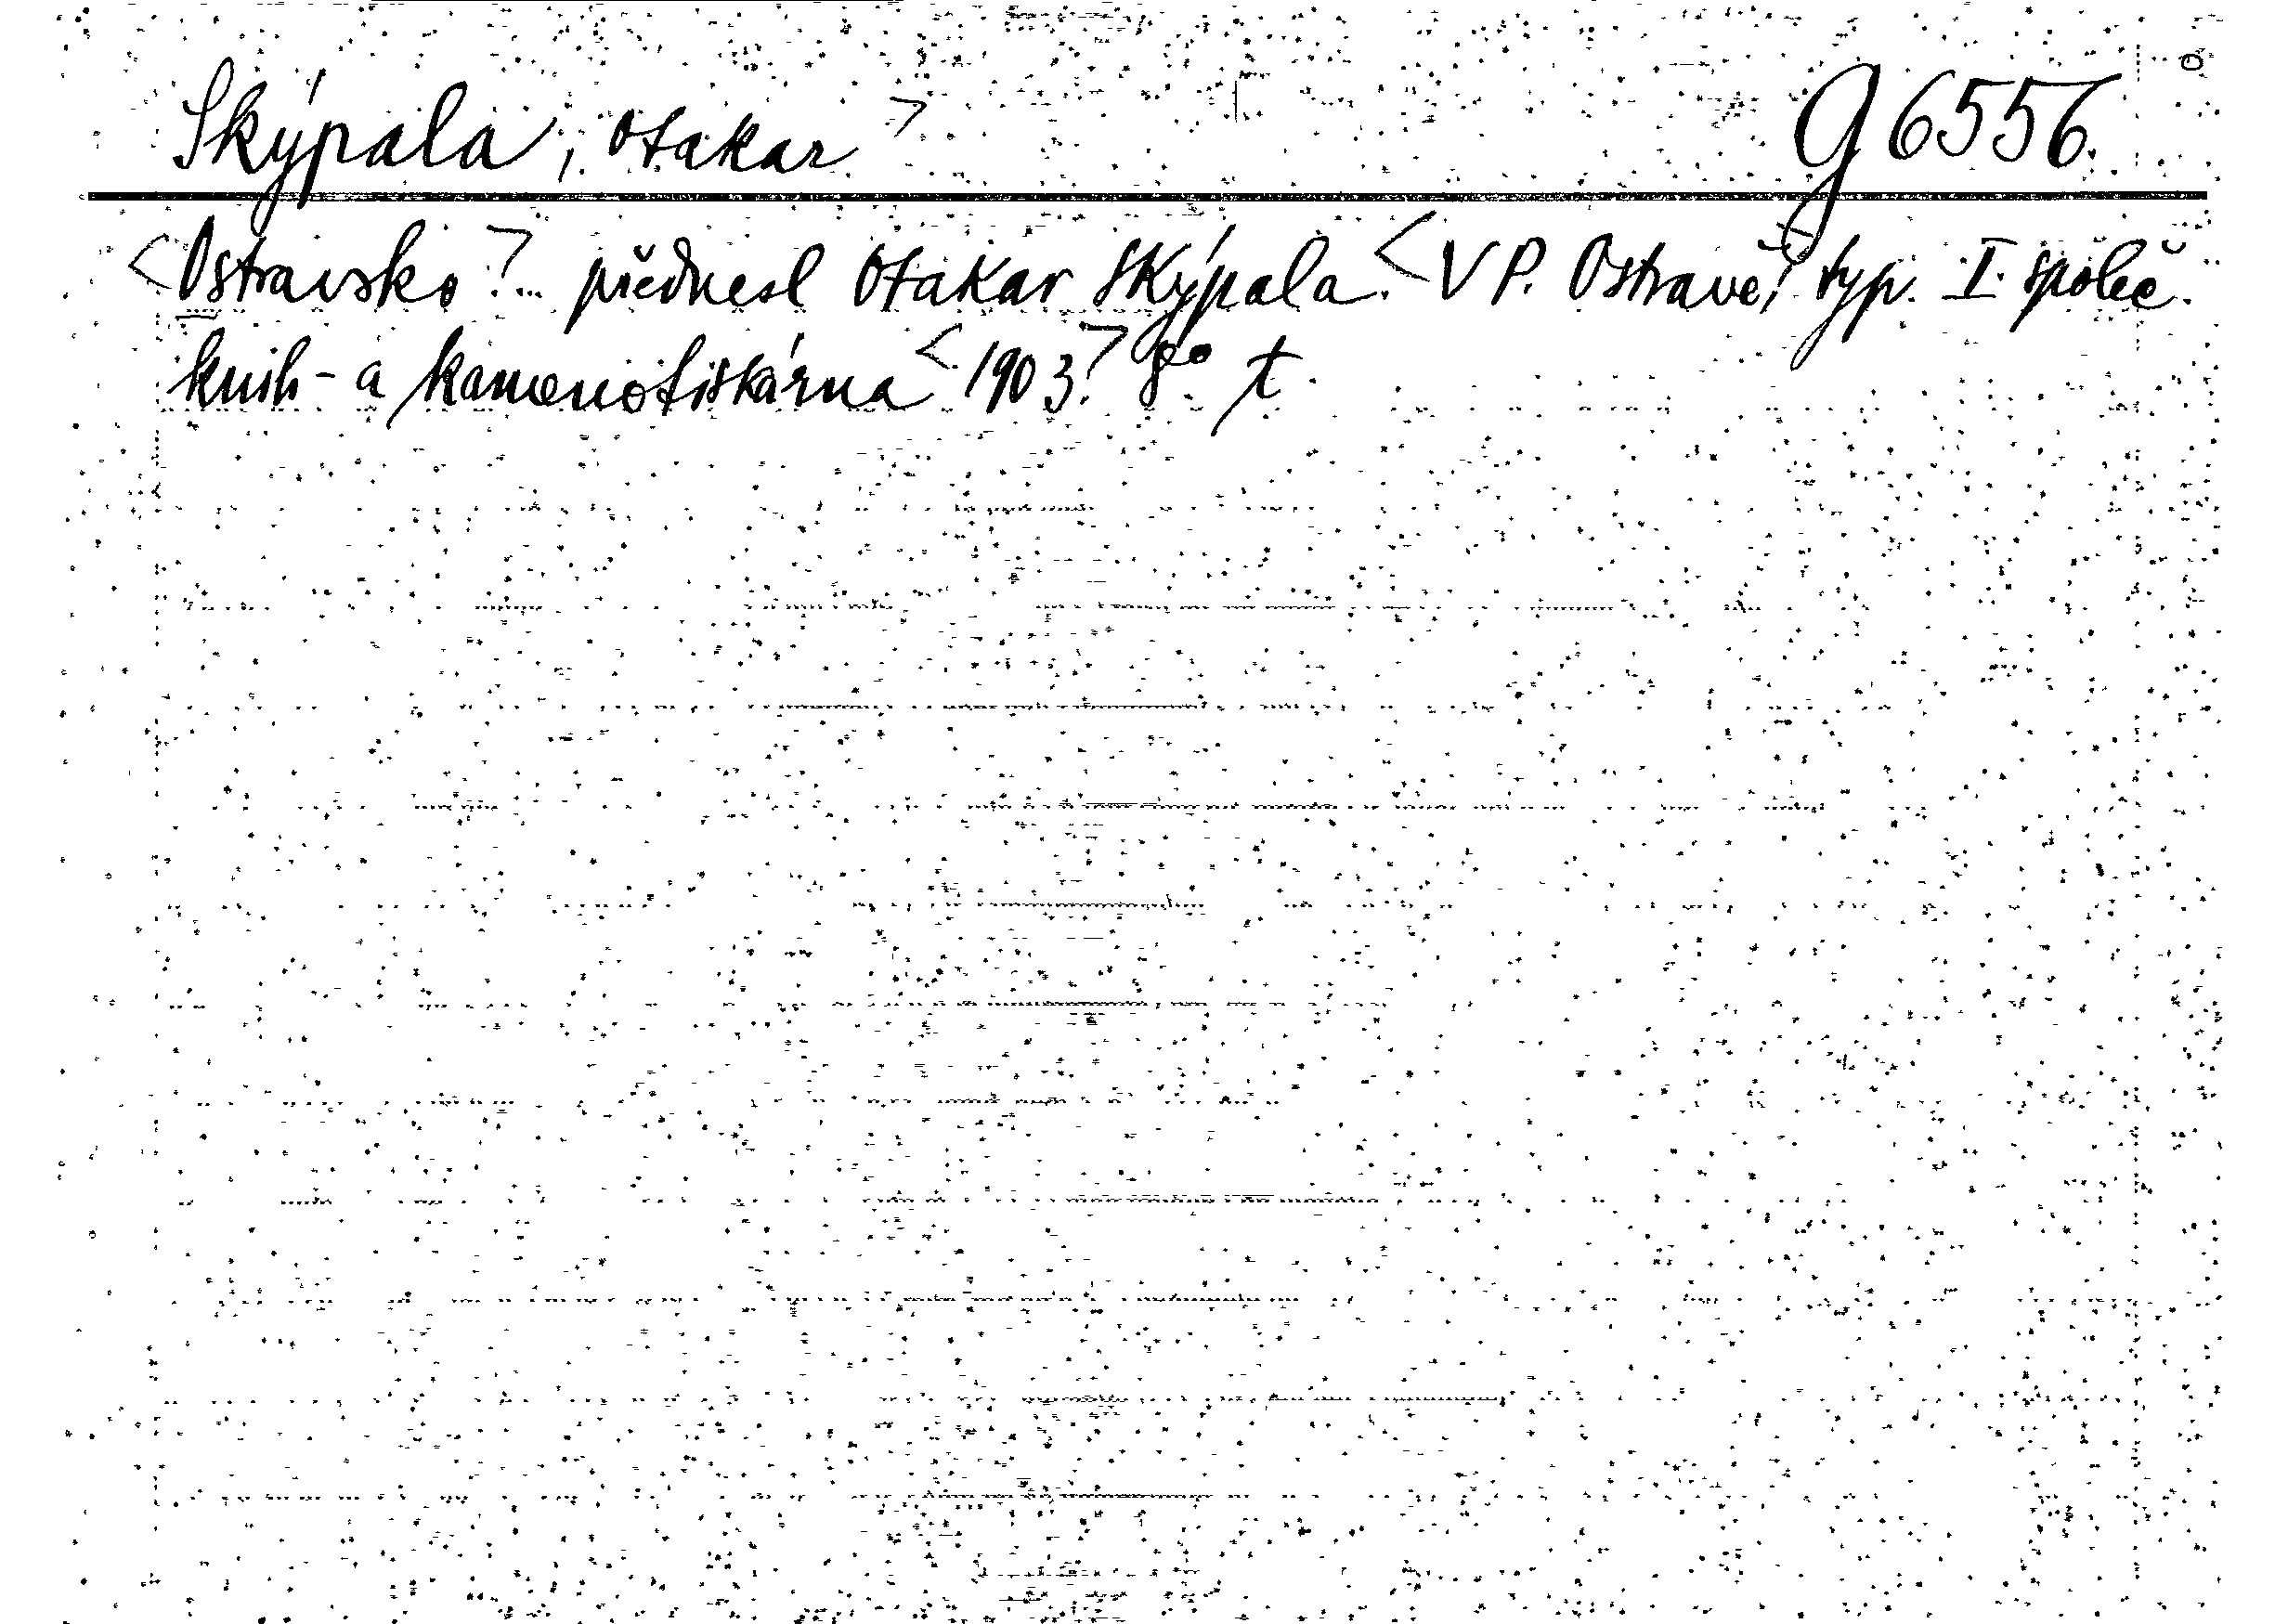 Skýpala, Otakar > g 6556.
<Ostravsko.> ... přednesl Otakar Skýpala. <V P. Ostravě, typ. I. společ.
knih- a kamenotiskárna <1903.> 8° t